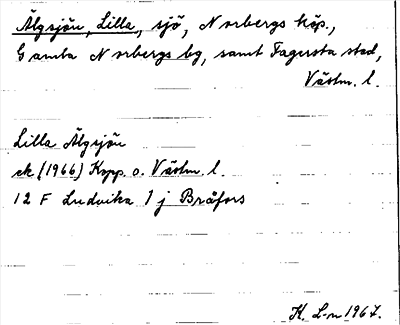 Älgsjön, Lilla, sjö, Norbergs köp.,
Gamla Norbergs bg, samt Fagersta stad,
Västm. l.
Lilla Älgsjön
ek (1966) Kopp. o. Västm. l.
12 F Ludvika 1 j Bråfors
K. L-n 1967.